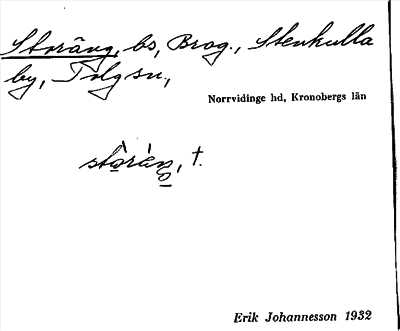 Storäng, bs, Brog., Stenkulla
by, Tolg sn.,
Norrvidinge hd, Kronobergs län
Erik Johannesson 1932